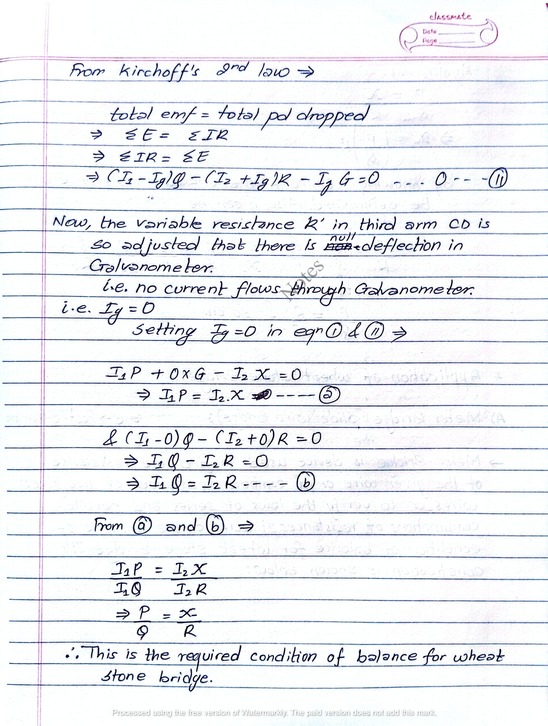 classmate
Date
Page
From Kirchoff's 2nd law ⇒
total emf = total pd dropped
⇒ ΣE = ΣIR
⇒ ΣIR = ΣE
⇒ (I₁ - Ig)Q - (I₂ + Ig)R - Ig G = 0 ... 0 --- ⑪
Now, the variable resistance R' in third arm CD is
so adjusted that there is null deflection in
Galvanometer.
i.e. no current flows through Galvanometer.
i.e. Ig = 0
Setting Ig = 0 in eqn ① & ⑪ ⇒
I₁P + 0×G - I₂X = 0
⇒ I₁P = I₂.X ---- ⓐ
& (I₁-0)Q - (I₂+0)R = 0
⇒ I₁Q - I₂R = 0
⇒ I₁Q = I₂R ---- ⓑ
From ⓐ and ⓑ ⇒
I₁P/I₁Q = I₂X/I₂R
⇒ P/Q = X/R
∴ This is the required condition of balance for wheat
stone bridge.
Notes
Processed using the free version of Watermarkly. The paid version does not add this mark.